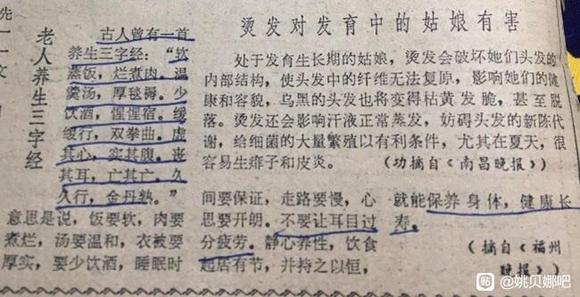 老人养生三字经
古人曾有一首
养生三字经："软
蒸饭，烂煮肉。温
羹汤，厚毯褥。少
饮酒，惺惺宿。缓
缓行，双拳曲。虚
其心，实其腹。丧
其耳，亡其亡。久
久行，金丹熟。"
意思是说，饭要软，肉要
煮烂，汤要温和，衣被要
厚实，要少饮酒，睡眠时
间要保证，走路要慢，心
思要开朗。不要让耳目过
分疲劳。静心养性，饮食
起居有节，并持之以恒，
就能保养身体，健康长
寿。
（摘自《福州
晚报》）
烫发对发育中的姑娘有害
处于发育生长期的姑娘，烫发会破坏她们头发的
内部结构，使头发中的纤维无法复原，影响她们的健
康和容貌，乌黑的头发也将变得枯黄发脆，甚至脱
落。烫发还会影响汗液正常蒸发，妨碍头发的新陈代
谢，给细菌的大量繁殖以有利条件，尤其在夏天，很
容易生痱子和皮炎。（功摘自《南昌晚报》）
贴 @姚贝娜吧